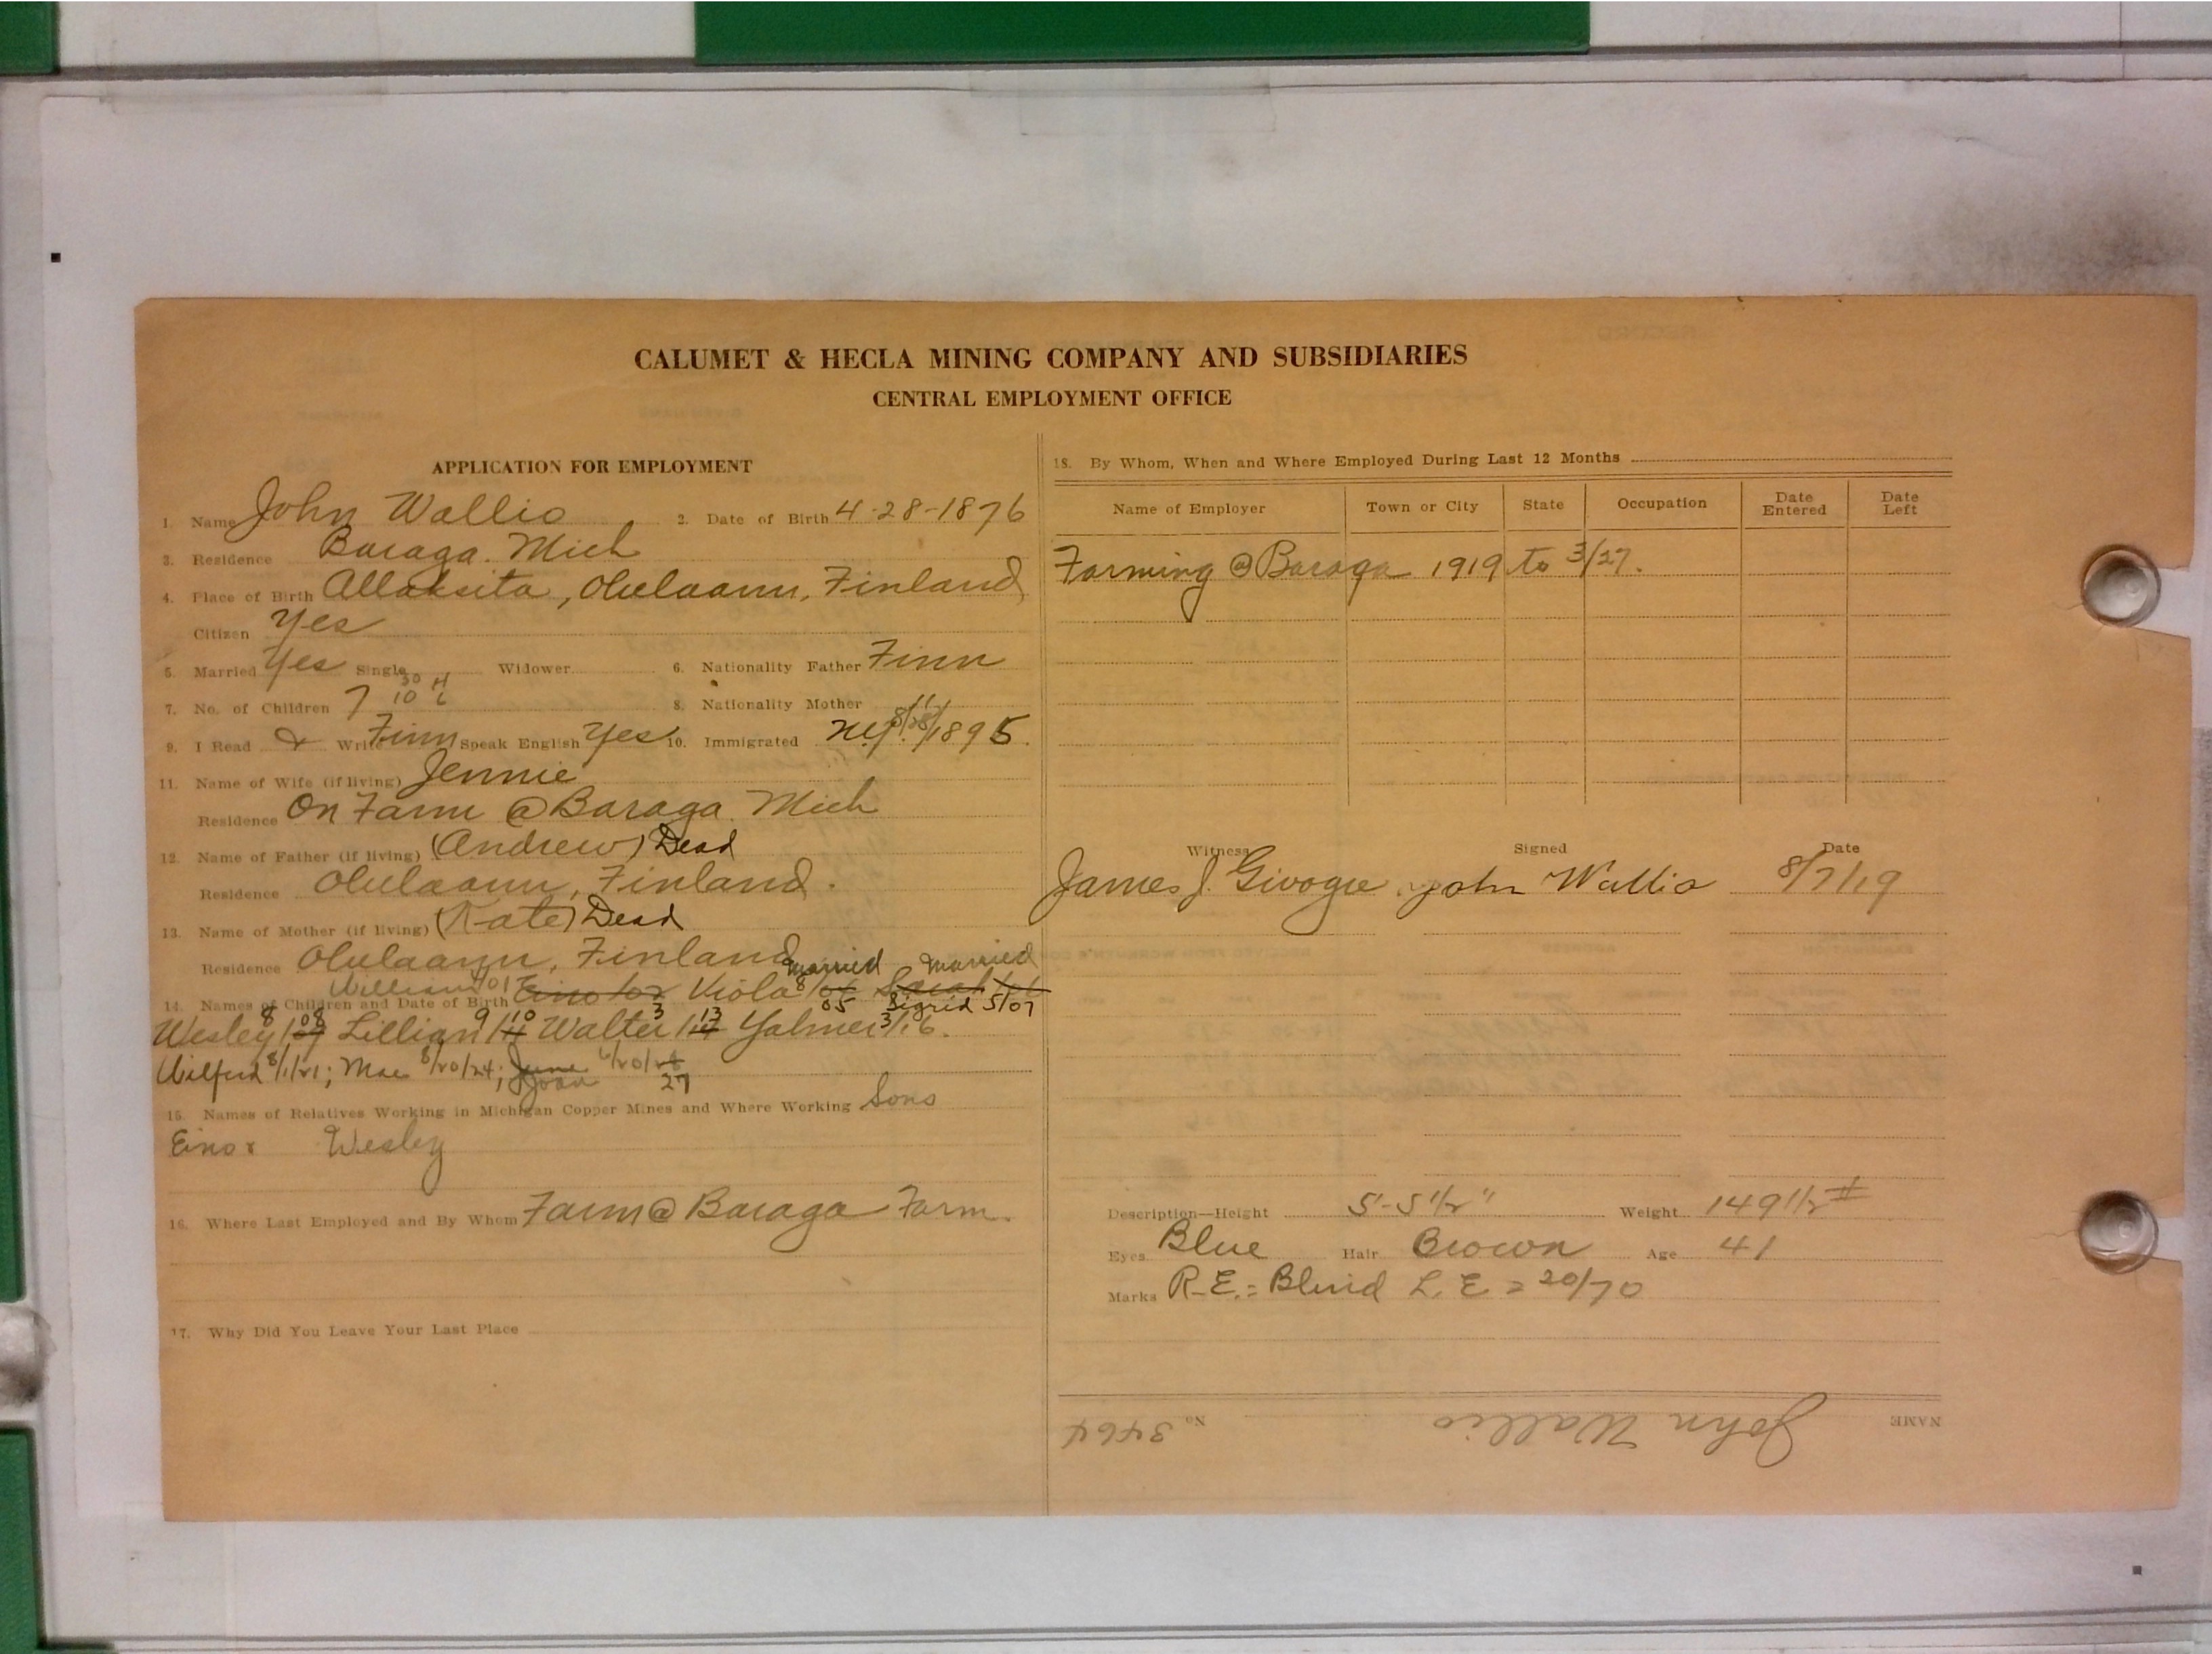 CALUMET & HECLA MINING COMPANY AND SUBSIDIARIES
CENTRAL EMPLOYMENT OFFICE
APPLICATION FOR EMPLOYMENT
1. Name John Wallio 2. Date of Birth 4-28-1876
3. Residence Baraga. Mich
4. Place of Birth Allaksita, Olulaann, Finland
Citizen Yes
5. Married Yes Single Widower 6. Nationality Father Finn
7. No. of Children 7 10
8. Nationality Mother "
9. I Read & Write Finn Speak English Yes 10. Immigrated N.Y. 1895.
11. Name of Wife (if living) Jennie
Residence On Farm @ Baraga. Mich
12. Name of Father (if living) (Andrew) Dead
Residence Olulaann, Finland.
13. Name of Mother (if living) (Kate) Dead
Residence Olulaann, Finland
married married
14. Names of Children and Date of Birth William/01 Eino/02 Viola 8/05 Sarah Sigrid 5/07
Wesley 8/08 Lillian 9/10 Walter 3/13 Yalmer 3/16.
Wilfred 8/1/21; Mae 8/20/24; June Joan 6/20/27
15. Names of Relatives Working in Michigan Copper Mines and Where Working Sons
Eino & Wesley
16. Where Last Employed and By Whom Farm @ Baraga Farm.
17. Why Did You Leave Your Last Place
18. By Whom, When and Where Employed During Last 12 Months
Name of Employer Town or City State Occupation Date Entered Date Left
Farming @ Baraga 1919 to 3/27.
Witness Signed Date
James J. Givogue John Wallio 8/7/19
Description—Height 5'-5 1/2" Weight 149 1/2 #
Eyes Blue Hair Brown Age 41
Marks R.E. = Blind L.E = 20/70
NAME John Wallio No. 3464